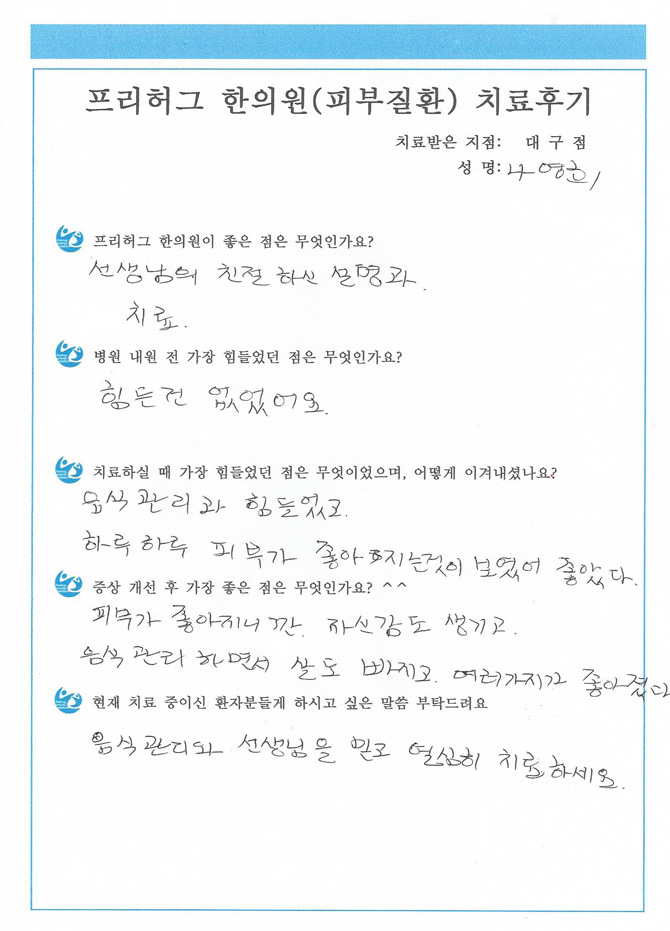 프리허그 한의원(피부질환) 치료후기
치료받은 지점: 대 구 점
성 명:
프리허그 한의원이 좋은 점은 무엇인가요?
선생님의 친절하신 설명과.
치료.
병원 내원 전 가장 힘들었던 점은 무엇인가요?
힘든건 없었어요.
치료하실 때 가장 힘들었던 점은 무엇이었으며, 어떻게 이겨내셨나요?
음식관리과 힘들었고.
하루하루 피부가 좋아지는것이 보였어 좋았다.
증상 개선 후 가장 좋은 점은 무엇인가요? ^^
피부가 좋아지니깐. 자신감도 생기고.
음식관리하면서 살도 빠지고. 여러가지가 좋아졌다
현재 치료 중이신 환자분들게 하시고 싶은 말씀 부탁드려요
음식관리와 선생님을 믿고 열심히 치료하세요.